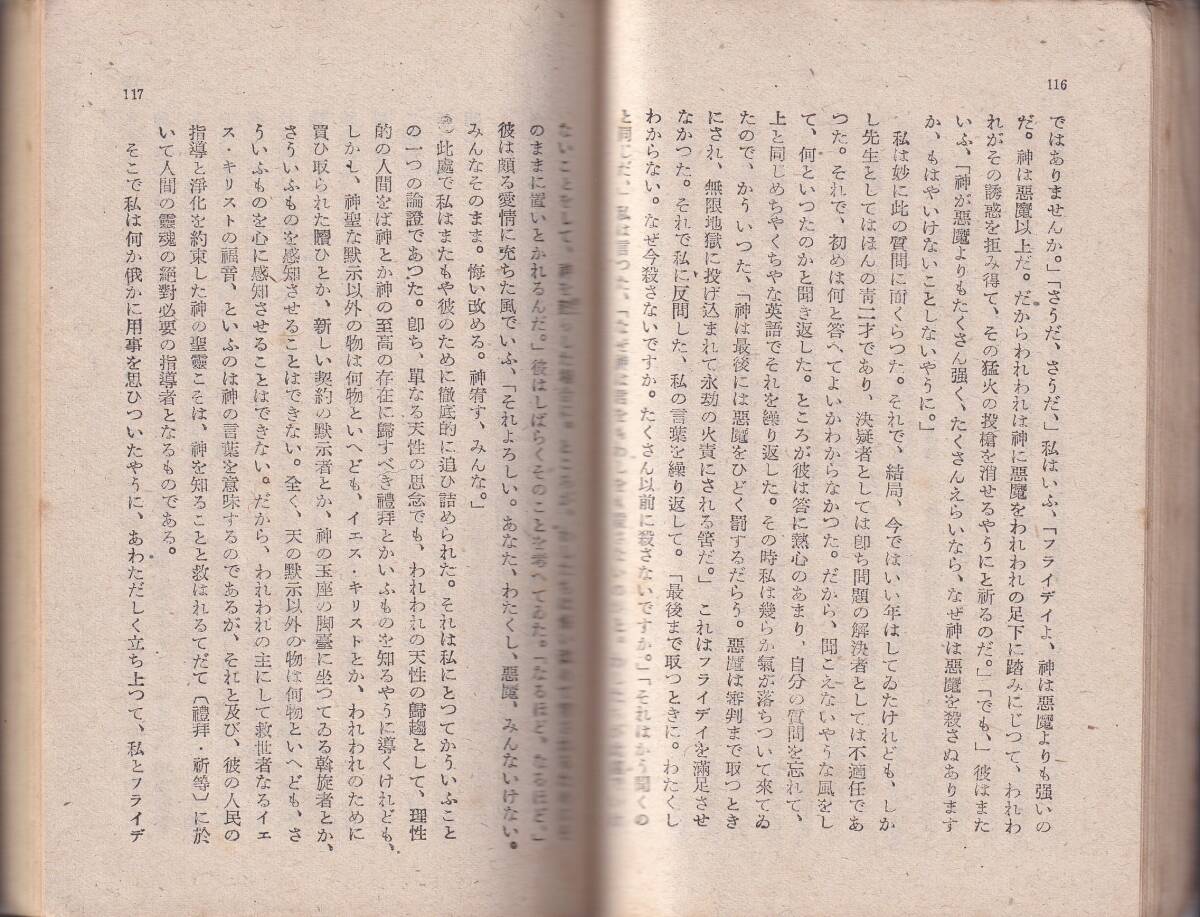 116
ではありませんか。」「さうだ、さうだ、」私はいふ、「フライデイよ、神は惡魔よりも强いの
だ。神は惡魔以上だ。だからわれわれは神に惡魔をわれわれの足下に踏みにじつて、われわ
れがその誘惑を拒み得て、その猛火の投槍を消せるやうにと祈るのだ。」「でも、」彼はまた
いふ、「神が惡魔よりもたくさん强く、たくさんえらいなら、なぜ神は惡魔を殺さぬあります
か、もはやいけないことしないやうに。」
私は妙に此の質問に面くらつた。それで、結局、今ではいい年はしてゐたけれども、しか
し先生としてはほんの靑二才であり、決疑者としては卽ち問題の解決者としては不適任であ
つた。それで、初めは何と答へてよいかわからなかつた。だから、聞こえないやうな風をし
て、何といつたのかと聞き返した。ところが彼は答に熱心のあまり、自分の質問を忘れて、
上と同じめちやくちやな英語でそれを繰り返した。その時私は幾らか氣が落ちついて來てゐ
たので、かういつた、「神は最後には惡魔をひどく罰するだらう。惡魔は審判まで取つとき
にされ、無限地獄に投げ込まれて永劫の火責にされる筈だ。」これはフライデイを滿足させ
なかつた。それで私に反問した、私の言葉を繰り返して。「最後まで取つときに。わたくし
わからない。なぜ今殺さないですか。たくさん以前に殺さないですか。」「それはかう聞くの
と同じだ、」私は言つた、「なぜ神は
117
ないことをして、
のままに置いとかれるんだ。」彼はしばらくそのことを考へてゐた。「なるほど、なるほど。」
彼は頗る愛情に充ちた風でいふ、「それよろしい。あなた、わたくし、惡魔、みんないけない。
みんなそのまま。悔い改める。神宥す、みんな。」
此處で私はまたもや彼のために徹底的に追ひ詰められた。それは私にとつてかういふこと
の一つの論證であつた。卽ち、單なる天性の思念でも、われわれの天性の歸趨として、理性
的の人間をば神とか神の至高の存在に歸すべき禮拜とかいふものを知るやうに導くけれども、
しかし、神聖な默示以外の物は何物といへども、イエス・キリストとか、われわれのために
買ひ取られた贖ひとか、新しい契約の默示者とか、神の玉座の脚臺に坐つてゐる斡旋者とか、
さういふものを感知させることはできない。全く、天の默示以外の物は何物といへども、さ
ういふものを心に感知させることはできない。だから、われわれの主にして救世者なるイエ
ス・キリストの福音、といふのは神の言葉を意味するのであるが、それと及び、彼の人民の
指導と淨化を約束した神の聖靈こそは、神を知ることと救はれるてだて〔禮拜・祈等〕に於
いて人間の靈魂の絕對必要の指導者となるものである。
そこで私は何か俄かに用事を思ひついたやうに、あわただしく立ち上つて、私とフライデ